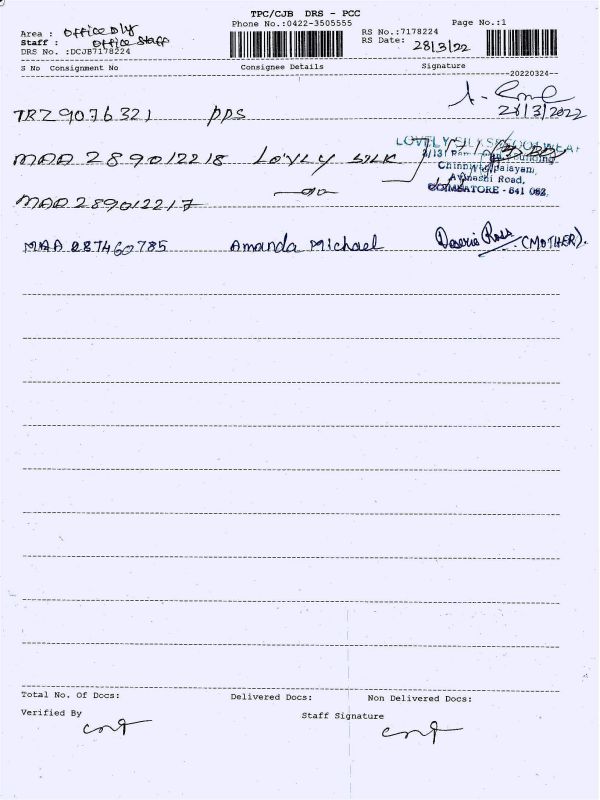 TPC/CJB DRS - PCC
Phone No.:0422-3505555 Page No.:1
Area : Office Dly RS No.:7178224
Staff : Office Staff RS Date: 28/3/22
DRS No. :DCJB7178224
S No Consignment No Consignee Details Signature
--20220324--
28/3/2022
TRZ9076321 PPS
LOVELY SILKS
MAA 289012218 LOVLY SILK
Chinniyampalayam,
Avinashi Road,
COIMBATORE - 641 062.
MAA289012217 -do-
MAA 287460785 Amanda Michael Deserie Ross (MOTHER).
Total No. Of Docs: Delivered Docs: Non Delivered Docs:
Verified By Staff Signature